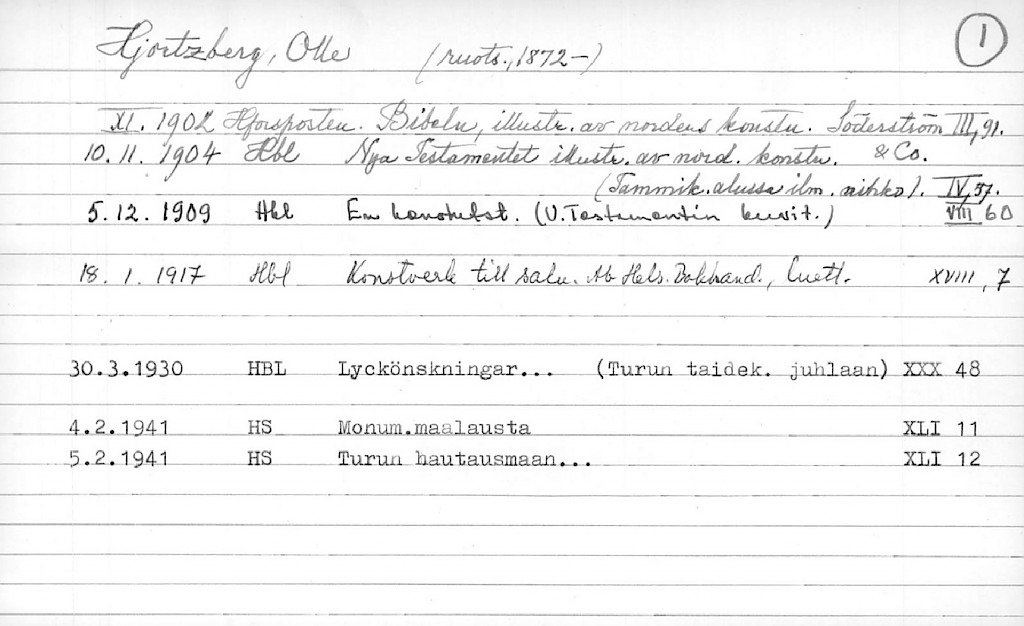 Hjortzberg, Olle (ruots., 1872-) 1
XI. 1902 Hforsposten. Bibeln, illustr. av nordens konstn. Söderström III, 91.
10. 11. 1904 Hbl Nya Testamentet illustr. av nord. konstn. & Co.
(Tammik. alussa ilm. vihko). IV, 37.
5. 12. 1909 Hbl En konst (U. Testamentin kuvit.) VIII 60
18. 1. 1917 Hbl Konstverk till salu. Ab Hels. Bokhand., luett. XVIII, 7
30.3.1930 HBL Lyckönskningar... (Turun taidek. juhlaan) XXX 48
4.2.1941 HS Monum.maalausta XLI 11
5.2.1941 HS Turun hautausmaan... XLI 12